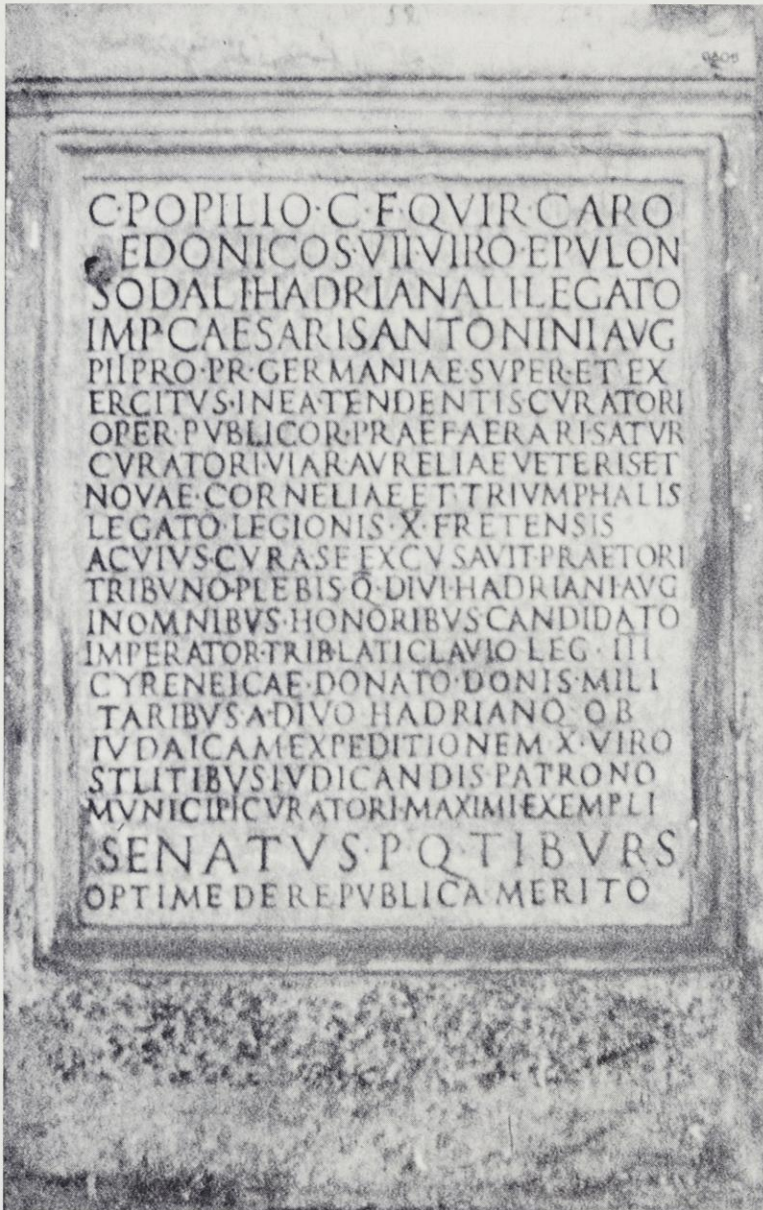 C·POPILIO·C·F·QVIR·CARO
EDONICOS·VII·VIRO·EPVLON
SODALIHADRIANALILEGATO
IMPCAESARISANTONINIAVG
PIIPRO·PR·GERMANIAE·SVPER·ET EX
ERCITVS·INEATENDENTISCVRATORI
OPER·PVBLICOR·PRAEFAERARISATVR
CVRATORI·VIARAVRELIAEVETERISET
NOVAE·CORNELIAEET·TRIVMPHALIS
LEGATO·LEGIONIS·X·FRETENSIS
ACVIVS·CVRASEEXCVSAVIT·PRAETORI
TRIBVNO·PLEBIS·Q·DIVI·HADRIANI·AVG
INOMNIBVS·HONORIBVSCANDIDATO
IMPERATOR·TRIB·LATICLAVIO LEG·III
CYRENEICAE·DONATO·DONIS·MILI
TARIBVS·A·DIVO HADRIANO OB
IVDAICAMEXPEDITIONEM X·VIRO
STLITIBVSIVDICANDIS·PATRONO
MVNICIPICVRATORI·MAXIMI·EXEMPLI
SENATVS·P·Q·TIBVRS
OPTIME DE REPVBLICA MERITO